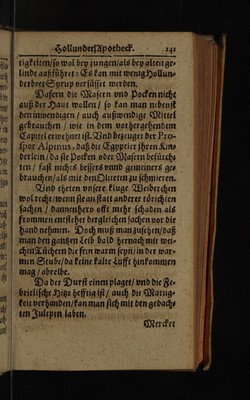 Hollunder/Apotheck. 141
tigkeiten/ so wol bey jungen/ als bey alten ge-
linde außführet: Es kan mit wenig Hollun-
derbeer Syrup versüsset werden.
Dafern die Masern und Pocken nicht
auß der Haut wollen/ so kan man nebenst
den innwendigen/ auch außwendige Mittel
gebrauchen/ wie in dem vorhergehendem
Capitel erwehnet ist. Und bezeuget der Pro-
sper Alpinus, daß die Egyptier ihren Kin-
derlein/ da sie Pocken oder Masern befürch-
ten/ fast nichts bessers unnd gemeiners ge-
brauchen/ als mit den Oliveten zu schmieren.
Und theten unsere kluge Weiberchen
wol recht/ wenn sie an statt anderer törichten
sachen/ dannenhero offt mehr schaden als
frommen entstehet dergleichen sachen vor die
hand nehmen. Doch muß man zusehen/ daß
man den gantzen Leib bald hernach mit wei-
chen Tüchern die fein warm seyn/ in der war-
men Stube/ da keine kalte Lufft hinkommen
mag/ abreibe.
Da der Durst einem plaget/ und die Fe-
brielische Hitze hefftig ist/ auch die Mattig-
keit verhanden/ kan man sich mit den gedach-
ten Julepen laben.
Mercket